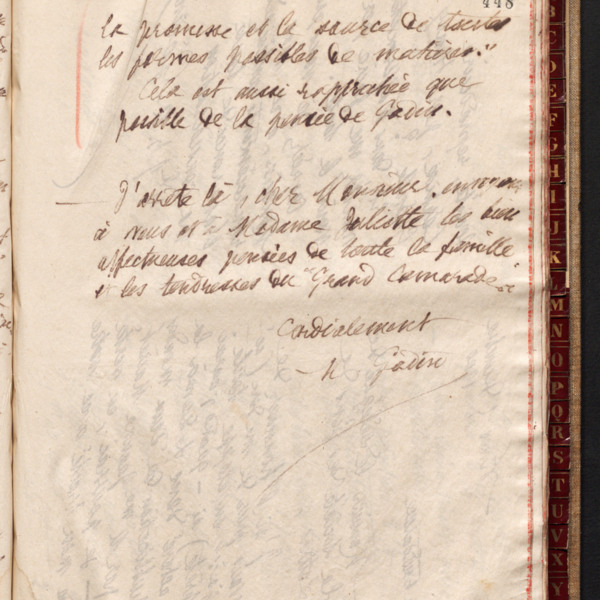 448
la promesse et la source de toutes
les formes possibles de matières."
Cela est aussi rapproché que
possible de la pensée de Gödin.
J'arrête là, cher Monsieur,
à vous et à Madame Juliette les bien
affectueuses pensées de toute la famille
et les tendresses du "Grand Camarade".
Cordialement
B
C
D
E
F
G
H
I
J
K
L
M
N
O
P
Q
R
S
T
U
V
X
Y